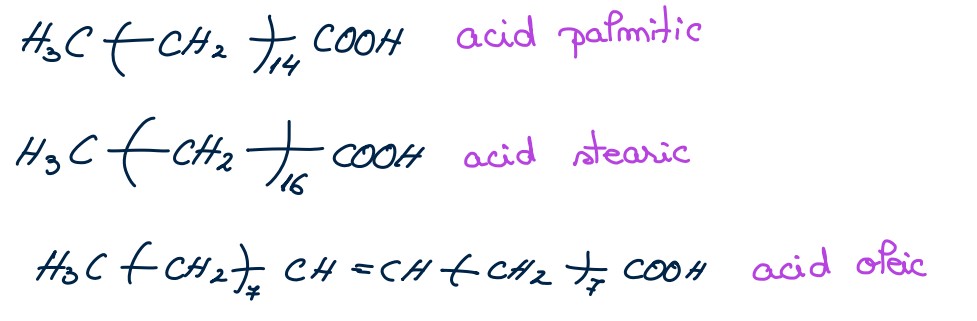 H₃C-(CH₂)₁₄-COOH acid palmitic
H₃C-(CH₂)₁₆-COOH acid stearic
H₃C-(CH₂)₇-CH=CH-(CH₂)₇-COOH acid oleic